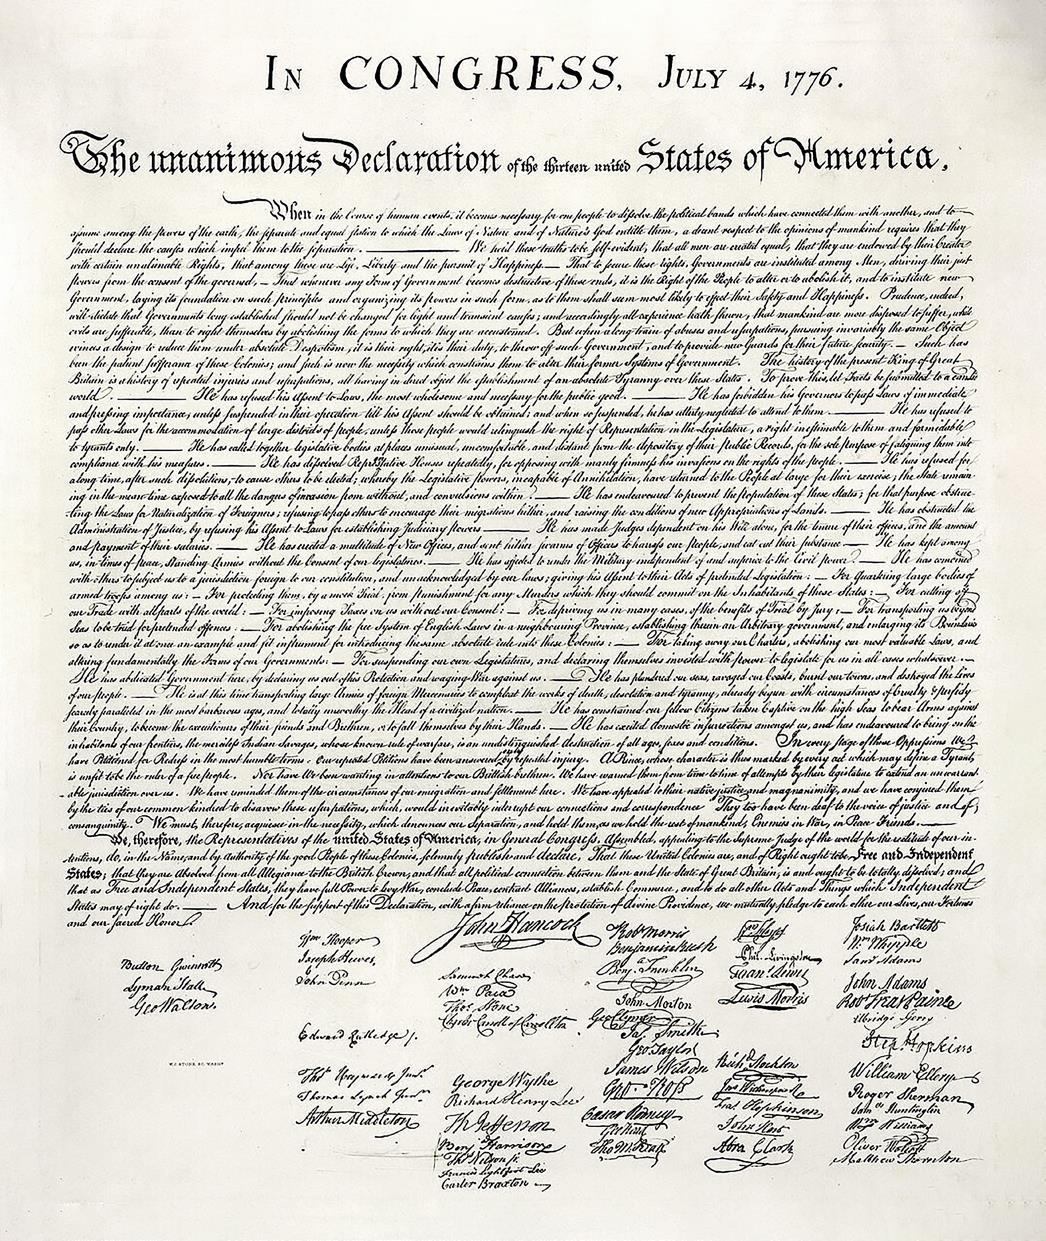 In CONGRESS, July 4, 1776.
The unanimous Declaration of the thirteen united States of America,
When in the Course of human events, it becomes necessary for one people to dissolve the political bands which have connected them with another, and to
assume among the powers of the earth, the separate and equal station to which the Laws of Nature and of Nature's God entitle them, a decent respect to the opinions of mankind requires that they
should declare the causes which impel them to the separation. — We hold these truths to be self-evident, that all men are created equal, that they are endowed by their Creator
with certain unalienable Rights, that among these are Life, Liberty and the pursuit of Happiness. — That to secure these rights, Governments are instituted among Men, deriving their just
powers from the consent of the governed, — That whenever any Form of Government becomes destructive of these ends, it is the Right of the People to alter or to abolish it, and to institute new
Government, laying its foundation on such principles and organizing its powers in such form, as to them shall seem most likely to effect their Safety and Happiness. Prudence, indeed,
will dictate that Governments long established should not be changed for light and transient causes; and accordingly all experience hath shewn, that mankind are more disposed to suffer, while
evils are sufferable, than to right themselves by abolishing the forms to which they are accustomed. But when a long train of abuses and usurpations, pursuing invariably the same Object
evinces a design to reduce them under absolute Despotism, it is their right, it is their duty, to throw off such Government, and to provide new Guards for their future security. — Such has
been the patient sufferance of these Colonies; and such is now the necessity which constrains them to alter their former Systems of Government. The history of the present King of Great
Britain is a history of repeated injuries and usurpations, all having in direct object the establishment of an absolute Tyranny over these States. To prove this, let Facts be submitted to a candid
world. — He has refused his Assent to Laws, the most wholesome and necessary for the public good. — He has forbidden his Governors to pass Laws of immediate
and pressing importance, unless suspended in their operation till his Assent should be obtained; and when so suspended, he has utterly neglected to attend to them. — He has refused to
pass other Laws for the accommodation of large districts of people, unless those people would relinquish the right of Representation in the Legislature, a right inestimable to them and formidable
to tyrants only. — He has called together legislative bodies at places unusual, uncomfortable, and distant from the depository of their public Records, for the sole purpose of fatiguing them into
compliance with his measures. — He has dissolved Representative Houses repeatedly, for opposing with manly firmness his invasions on the rights of the people. — He has refused for
a long time, after such dissolutions, to cause others to be elected; whereby the Legislative powers, incapable of Annihilation, have returned to the People at large for their exercise; the State remain-
ing in the mean time exposed to all the dangers of invasion from without, and convulsions within. — He has endeavoured to prevent the population of these States; for that purpose obstruc-
ting the Laws for Naturalization of Foreigners; refusing to pass others to encourage their migrations hither, and raising the conditions of new Appropriations of Lands. — He has obstructed the
Administration of Justice, by refusing his Assent to Laws for establishing Judiciary powers. — He has made Judges dependent on his Will alone, for the tenure of their offices, and the amount
and payment of their salaries. — He has erected a multitude of New Offices, and sent hither swarms of Officers to harrass our people, and eat out their substance. — He has kept among
us, in times of peace, Standing Armies without the Consent of our legislatures. — He has affected to render the Military independent of and superior to the Civil power. — He has combined
with others to subject us to a jurisdiction foreign to our constitution, and unacknowledged by our laws; giving his Assent to their Acts of pretended Legislation: — For Quartering large bodies of
armed troops among us: — For protecting them, by a mock Trial, from punishment for any Murders which they should commit on the Inhabitants of these States: — For cutting off
our Trade with all parts of the world: — For imposing Taxes on us without our Consent: — For depriving us in many cases, of the benefits of Trial by Jury: — For transporting us beyond
Seas to be tried for pretended offences — For abolishing the free System of English Laws in a neighbouring Province, establishing therein an Arbitrary government, and enlarging its Boundaries
so as to render it at once an example and fit instrument for introducing the same absolute rule into these Colonies: — For taking away our Charters, abolishing our most valuable Laws, and
altering fundamentally the Forms of our Governments: — For suspending our own Legislatures, and declaring themselves invested with power to legislate for us in all cases whatsoever. —
He has abdicated Government here, by declaring us out of his Protection and waging War against us. — He has plundered our seas, ravaged our Coasts, burnt our towns, and destroyed the Lives
of our people. — He is at this time transporting large Armies of foreign Mercenaries to compleat the works of death, desolation and tyranny, already begun with circumstances of Cruelty & perfidy
scarcely paralleled in the most barbarous ages, and totally unworthy the Head of a civilized nation. — He has constrained our fellow Citizens taken Captive on the high Seas to bear Arms against
their Country, to become the executioners of their friends and Brethren, or to fall themselves by their Hands. — He has excited domestic insurrections amongst us, and has endeavoured to bring on the
inhabitants of our frontiers, the merciless Indian Savages, whose known rule of warfare, is an undistinguished destruction of all ages, sexes and conditions. In every stage of these Oppressions We
have Petitioned for Redress in the most humble terms: Our repeated Petitions have been answered only by repeated injury. A Prince, whose character is thus marked by every act which may define a Tyrant,
is unfit to be the ruler of a free people. Nor have We been wanting in attentions to our Brittish brethren. We have warned them from time to time of attempts by their legislature to extend an unwarrant-
able jurisdiction over us. We have reminded them of the circumstances of our emigration and settlement here. We have appealed to their native justice and magnanimity, and we have conjured them
by the ties of our common kindred to disavow these usurpations, which, would inevitably interrupt our connections and correspondence They too have been deaf to the voice of justice and of
consanguinity. We must, therefore, acquiesce in the necessity, which denounces our Separation, and hold them, as we hold the rest of mankind, Enemies in War, in Peace Friends. —
We, therefore, the Representatives of the united States of America, in General Congress, Assembled, appealing to the Supreme Judge of the world for the rectitude of our in-
tentions, do, in the Name, and by Authority of the good People of these Colonies, solemnly publish and declare, That these United Colonies are, and of Right ought to be Free and Independent
States; that they are Absolved from all Allegiance to the British Crown, and that all political connection between them and the State of Great Britain, is and ought to be totally dissolved; and
that as Free and Independent States, they have full Power to levy War, conclude Peace, contract Alliances, establish Commerce, and to do all other Acts and Things which Independent
States may of right do. — And for the support of this Declaration, with a firm reliance on the protection of divine Providence, we mutually pledge to each other our Lives, our Fortunes
and our sacred Honor.
Button Gwinnett
Lyman Hall
Geo Walton.
Wm Hooper
Joseph Hewes,
John Penn
Edward Rutledge /.
Thos Heyward Junr.
Thomas Lynch Junr.
Arthur Middleton
John Hancock
Samuel Chase
Wm Paca
Thos Stone
Charles Carroll of Carrollton
George Wythe
Richard Henry Lee
Th Jefferson
Benj Harrison
Thos Nelson jr.
Francis Lightfoot Lee
Carter Braxton
Robt Morris
Benjamin Rush
Benj. Franklin
John Morton
Geo Clymer
Jas. Smith
Geo. Taylor
James Wilson
Geo. Ross
Caesar Rodney
Geo Read
Tho M:Kean
Wm Floyd
Phil. Livingston
Frans. Lewis
Lewis Morris
Richd. Stockton
Jno Witherspoon
Fras. Hopkinson
John Hart
Abra Clark
Josiah Bartlett
Wm Whipple
Saml Adams
John Adams
Robt Treat Paine
Elbridge Gerry
Step. Hopkins
William Ellery
Roger Sherman
Saml Huntington
Wm Williams
Oliver Wolcott
Matthew Thornton
W.J. STONE. SC. WASHN